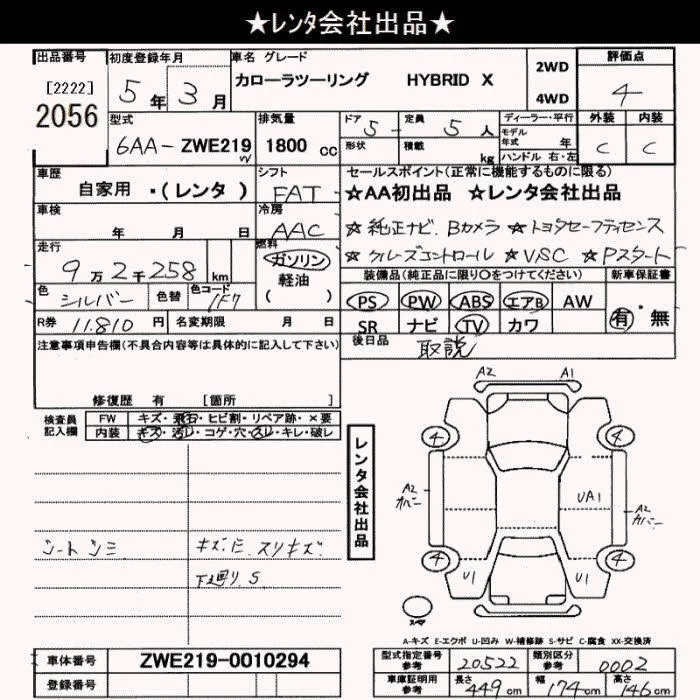 ★レンタ会社出品★
出品番号 初度登録年月 車名 グレード 評価点
[2222] 5年 3月 カローラツーリング HYBRID X 2WD 4WD 4
2056
型式 排気量 ドア 5 定員 5人 ディーラー・平行 外装 内装
6AA-ZWE219 W 1800 cc 形状 積載 kg モデル年式 年 C C
ハンドル 右・左
車歴 シフト セールスポイント(正常に機能するものに限る)
自家用 ・(レンタ) FAT ☆AA初出品 ☆レンタ会社出品
車検 年 月 日 冷房 AAC ☆純正ナビ.Bカメラ ☆トヨタセーフティセンス
走行 燃料 ☆クルーズコントロール ☆VSC ☆Pスタート
9万2千258km ガソリン 装備品(純正品に限り○をつけてください) 新車保証書
軽油
( )
色 シルバー 色替 色コード 1F7 PS PW ABS エアB AW 有・無
R券 11.810円 名変期限 月 日 SR ナビ TV カワ
注意事項申告欄(不具合内容等は具体的に記入して下さい) 後日品 取説
修復歴 有 [箇所 ]
検査員記入欄 FW キズ・飛石・ヒビ割・リペア跡・×要
内装 キズ・汚レ・コゲ・穴・スレ・キレ・破レ
レンタ会社出品
A2 A1
4 4
A2 カバー UA1 A2 カバー
4 4
U1 U1
スペア
シートシミ キズ.E.スリキズ.
下廻り S.
A-キズ E-エクボ U-凹み W-補修跡 S-サビ C-腐食 XX-交換済
車体番号 ZWE219-0010294 型式指定番号 参考 20522 類別区分 参考 0002
登録番号 車庫証明用 参考 長さ 449cm 幅 174cm 高さ 146cm